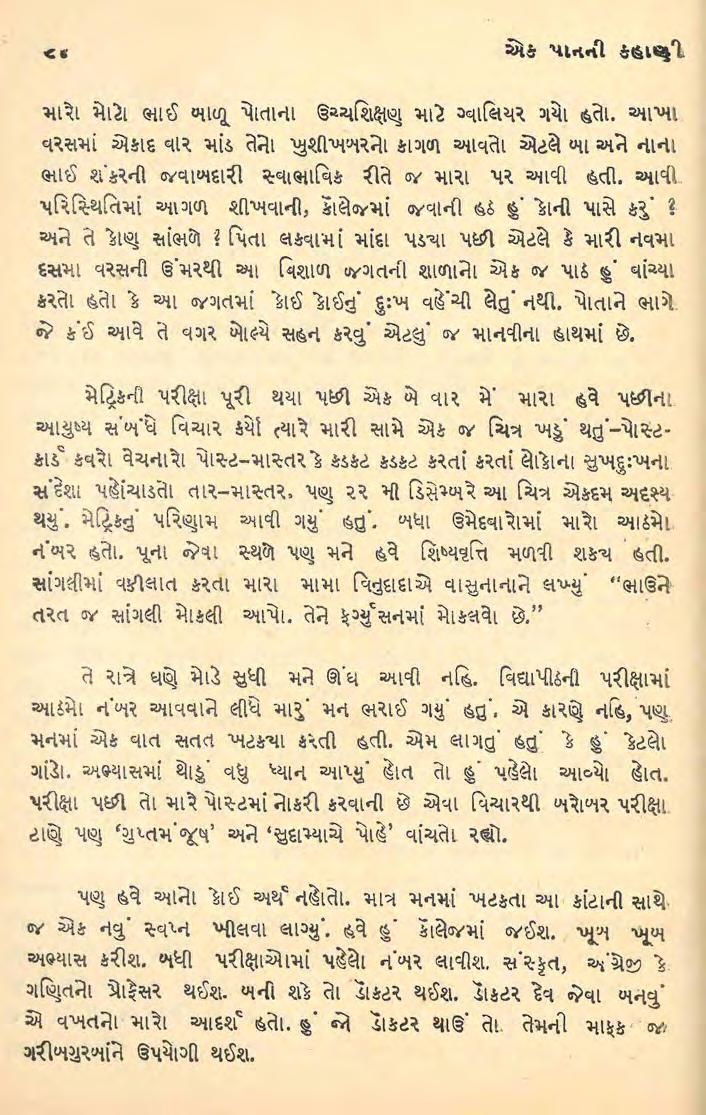 ૯૪ એક પાનની કહાણી
મારો મોટો ભાઈ બાળૂ પોતાના ઉચ્ચશિક્ષણ માટે ગ્વાલિયર ગયો હતો. આખા
વરસમાં એકાદ વાર માંડ તેનો ખુશીખબરનો કાગળ આવતો એટલે બા અને નાના
ભાઈ શંકરની જવાબદારી સ્વાભાવિક રીતે જ મારા પર આવી હતી. આવી
પરિસ્થિતિમાં આગળ શીખવાની, કૉલેજમાં જવાની હઠ હું કોની પાસે કરું ?
અને તે કોણ સાંભળે ? પિતા લકવામાં માંદા પડચા પછી એટલે કે મારી નવમા
દસમા વરસની ઉંમરથી આ વિશાળ જગતની શાળાનો એક જ પાઠ હું વાંચ્યા
કરતો હતો કે આ જગતમાં કોઈ કોઈનું દુઃખ વહેંચી લેતું નથી. પોતાને ભાગે
જે કંઈ આવે તે વગર બોલ્યે સહન કરવું એટલું જ માનવીના હાથમાં છે.
મેટ્રિકની પરીક્ષા પૂરી થયા પછી એક બે વાર મેં મારા હવે પછીના
આયુષ્ય સંબંધે વિચાર કર્યો ત્યારે મારી સામે એક જ ચિત્ર ખડું થતું–પોસ્ટ-
કાર્ડ કવરો વેચનારો પોસ્ટ-માસ્તર કે કડકટ કડકટ કરતાં કરતાં લોકોના સુખદુઃખના
સંદેશા પહોંચાડતો તાર–માસ્તર. પણ ૨૨ મી ડિસેમ્બરે આ ચિત્ર એકદમ અદશ્ય
થયું. મેટ્રિકનું પરિણામ આવી ગયું હતું. બધા ઉમેદવારોમાં મારો આઠમો
નંબર હતો. પૂના જેવા સ્થળે પણ મને હવે શિષ્યવૃત્તિ મળવી શકચ હતી.
સાંગલીમાં વકીલાત કરતા મારા મામા વિનુદાદાએ વાસુનાનાને લખ્યું “ભાઉને
તરત જ સાંગલી મોકલી આપો. તેને ફર્ગ્યુસનમાં મોકલવો છે.”
તે રાત્રે ઘણે મોડે સુધી મને ઊંઘ આવી નહિ. વિદ્યાપીઠની પરીક્ષામાં
આઠમો નંબર આવવાને લીધે મારું મન ભરાઈ ગયું હતું. એ કારણે નહિ, પણ
મનમાં એક વાત સતત ખટકચા કરતી હતી. એમ લાગતું હતું કે હું કેટલો
ગાંડો. અભ્યાસમાં થોડું વધુ ધ્યાન આપ્યું હોત તો હું પહેલો આવ્યો હોત.
પરીક્ષા પછી તો મારે પોસ્ટમાં નોકરી કરવાની છે એવા વિચારથી બરોબર પરીક્ષા
ટાણે પણ ‘ગુપ્તમંજૂષ’ અને ‘સુદામ્યાચે પોહે’ વાંચતો રહ્યો.
પણ હવે આનો કોઈ અર્થ નહોતો. માત્ર મનમાં ખટકતા આ કાંટાની સાથે
જ એક નવું સ્વપ્ન ખીલવા લાગ્યું. હવે હું કૉલેજમાં જઈશ. ખૂબ ખૂબ
અભ્યાસ કરીશ. બધી પરીક્ષાઓમાં પહેલો નંબર લાવીશ. સંસ્કૃત, અંગ્રેજી કે
ગણિતનો પ્રોફેસર થઈશ. બની શકે તો ડૉકટર થઈશ. ડૉકટર દેવ જેવા બનવું
એ વખતનો મારો આદર્શ હતો. હું જો ડૉકટર થાઉં તો તેમની માફક જ
ગરીબગુરબાંને ઉપયોગી થઈશ.